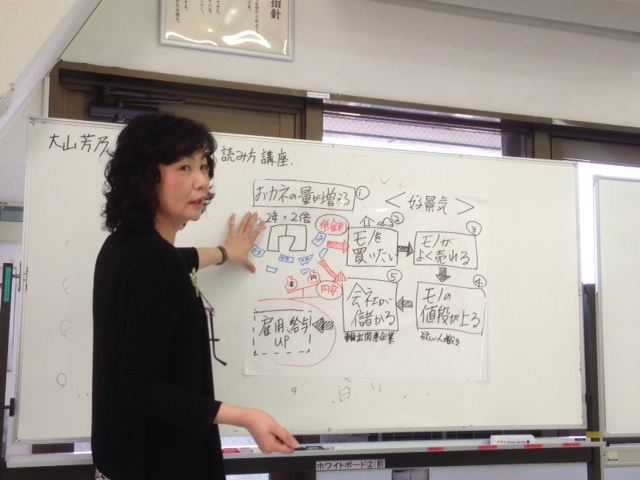 指針
大山芳乃
読み方講座.
おカネの量が増える ①
<好景気>
2年で2倍
低金利
②
モノを
買いたい
③
モノが
よく売れる
④
モノの
値段が上る
欲しい人増える
⑤
会社が
儲かる
輸出関連企業
円安
$ 円
雇用、給与
UP
ホワイトボード② 前